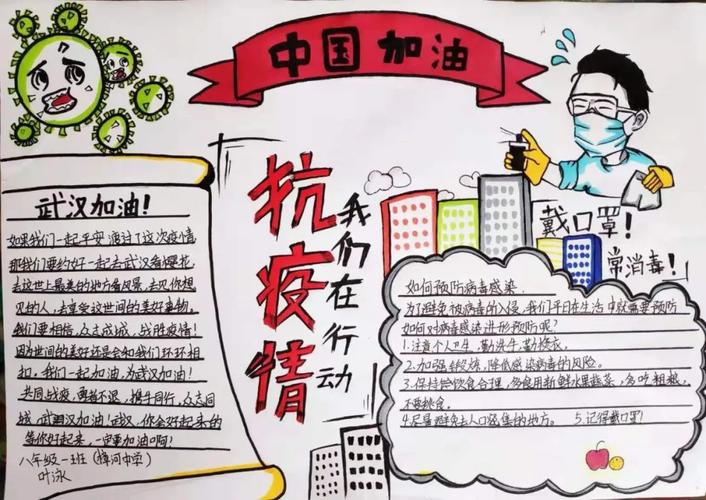 中国加油
武汉加油！
如果我们一起平安度过了这次疫情
那我们要约好一起去武汉看樱花
去这世上最美的地方看风景，去见你想
见的人，去享受这世间的美好事物。
我们要相信，众志成城，战胜疫情！
因为世间的美好还是会和我们环环相
扣，我们一起加油，为武汉加油！
共同战疫，勇者不退，携手同行，众志成
城，武汉加油！武汉，你会好起来的
等你好起来，一定要加油啊！
八年级一班（樟河中学）
叶泳
抗疫情
我们在行动
戴口罩！
常消毒！
如何预防病毒感染
为了避免被病毒的入侵，我们平日在生活中就需要预防
如何对病毒感染进行预防呢？
1.注意个人卫生，勤洗手，勤换衣，
2.加强锻炼，降低感染病毒的风险。
3.保持饮食合理，多食用新鲜水果蔬菜，多吃粗粮，
不要挑食。
4.尽量避免去人口密集的地方。 5.记得戴口罩！